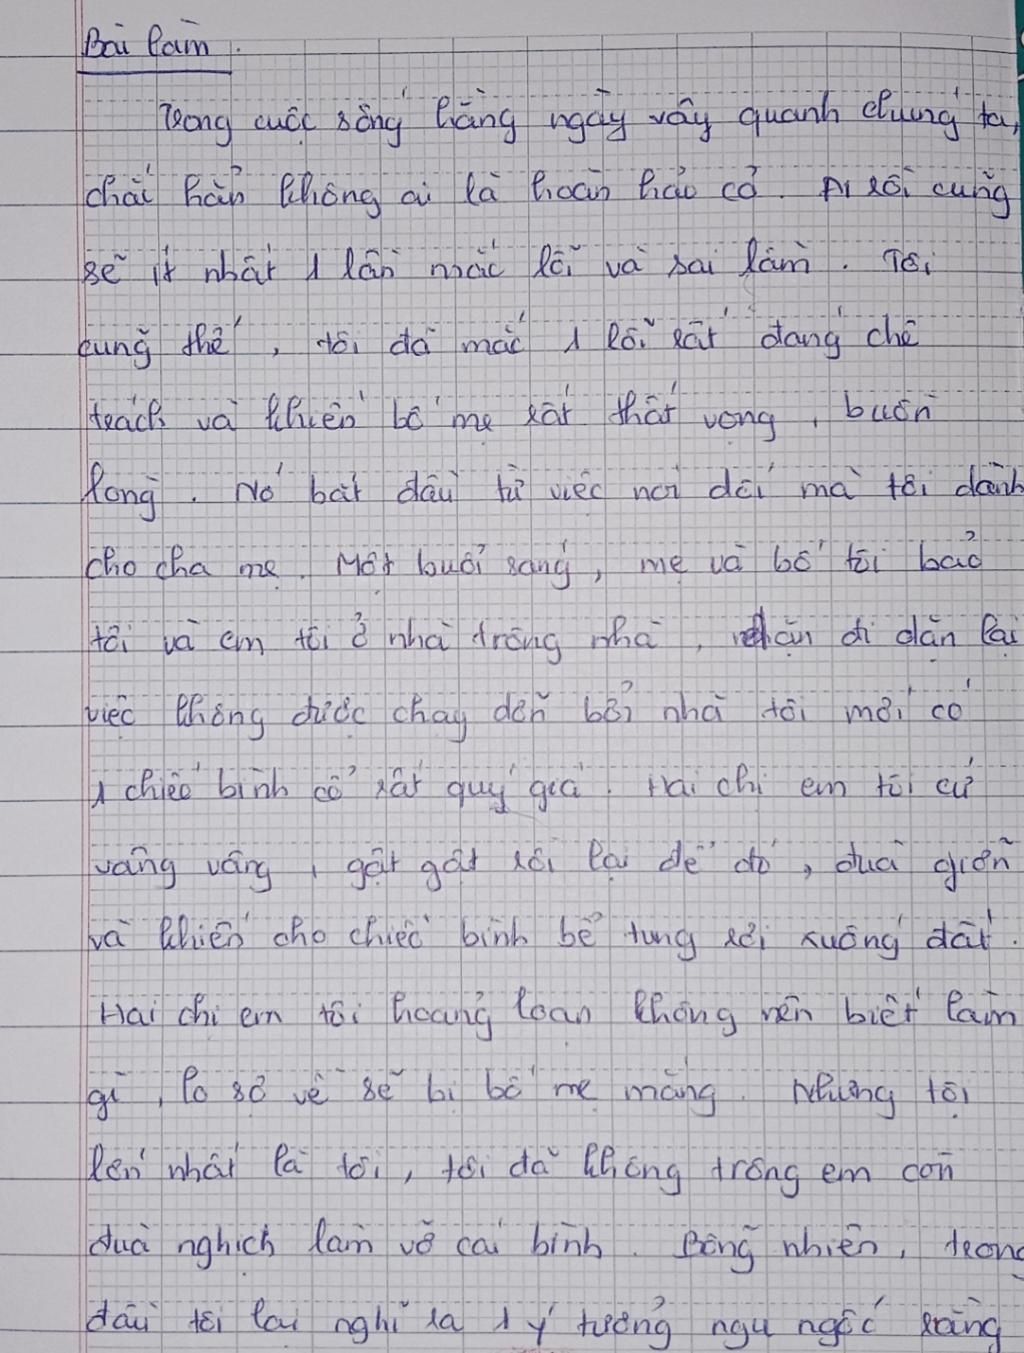 Bài làm.
Trong cuộc sống hằng ngày vây quanh chúng ta,
chắc hẳn không ai là hoàn hảo cả. Ai rồi cũng
sẽ ít nhất 1 lần mắc lỗi và sai lầm. Tôi
cũng thế, tôi đã mắc 1 lỗi rất đáng chê
trách và khiến bố mẹ rất thất vọng, buồn
lòng. Nó bắt đầu từ việc nói dối mà tôi dành
cho cha mẹ. Một buổi sáng, mẹ và bố tôi bảo
tôi và em tôi ở nhà trông nhà, căn đi dặn lại
việc không được chạy đến bởi nhà tôi mới có
1 chiếc bình cổ rất quý giá. Hai chị em tôi cứ
vâng vâng, gật gật rồi lại để đó, đùa giỡn
và khiến cho chiếc bình bể tung rơi xuống đất.
Hai chị em tôi hoảng loạn không nên biết làm
gì, lo sợ về sẽ bị bố mẹ mắng. Nhưng tội
lớn nhất là tôi, tôi đã không trông em còn
đùa nghịch làm vỡ cái bình. Bỗng nhiên, trong
đầu tôi lại nghĩ ra 1 ý tưởng ngu ngốc rằng